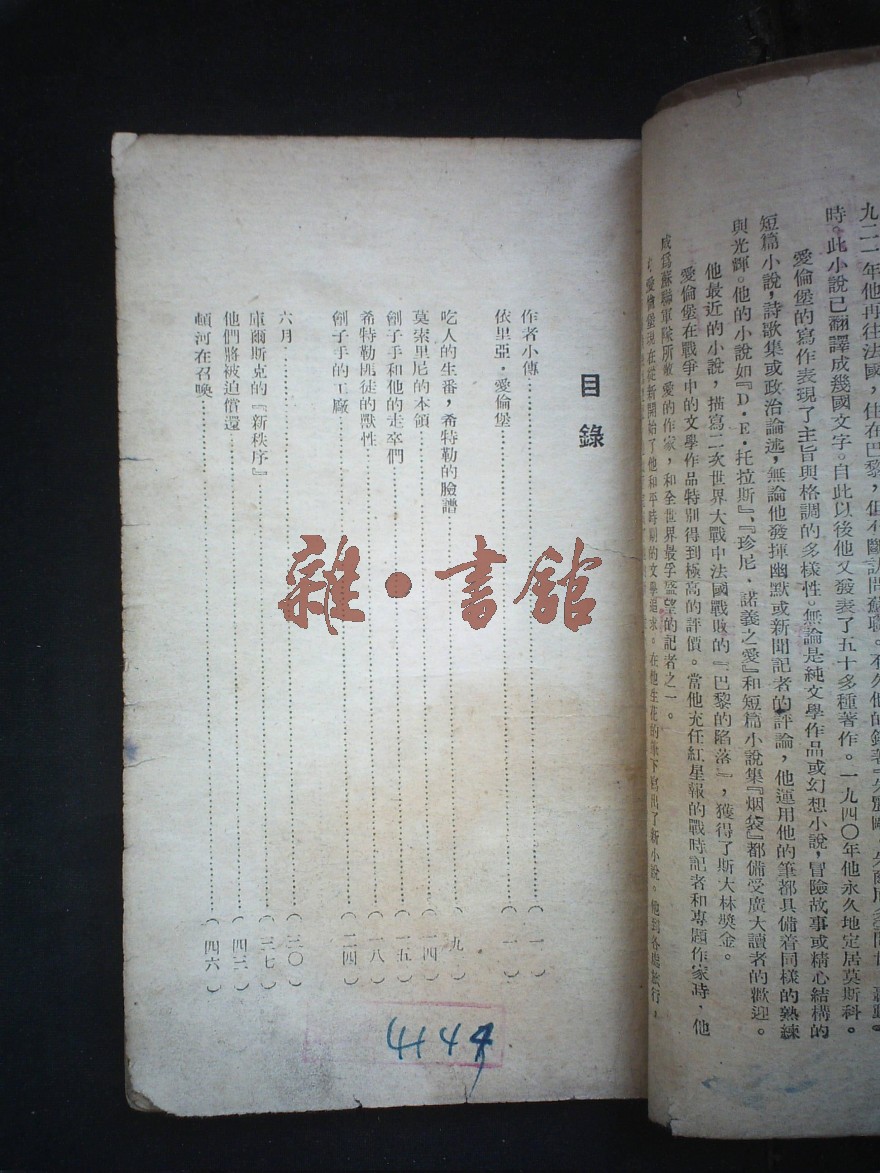 年他再往法國,住在巴黎,但不斷訪問蘇聯。不久他的鉅著
時。此小說已翻譯成幾國文字。自此以後他又發表了五十多種著作。一九四〇年他永久地定居莫斯科。
愛倫堡的寫作表現了主旨與格調的多樣性。無論是純文學作品或幻想小說,冒險故事或精心結構的
短篇小說,詩歌集或政治論述,無論他發揮幽默或新聞記者的評論,他運用他的筆都具備着同樣的熟練
與光輝。他的小說如『D·E·托拉斯』、『珍尼·諾義之愛』和短篇小說集『烟袋』都備受廣大讀者的歡迎。
他最近的小說,描寫二次世界大戰中法國戰敗的『巴黎的陷落』,獲得了斯大林獎金。
愛倫堡在戰爭中的文學作品特別得到極高的評價。當他充任紅星報的戰時記者和專題作家時,他
成爲蘇聯軍隊所敬愛的作家,和全世界最孚盛望的記者之一。
愛倫堡現在從新開始了他和平時期的文學追求。在他生花的筆下寫出了新小說。他到各處旅行,
目錄
作者小傳……(一)
依里亞·愛倫堡……(一)
吃人的生番,希特勒的臉譜……(九)
莫索里尼的本領……(一四)
劊子手和他的走卒們……(一五)
希特勒匪徒的獸性……(一八)
劊子手的工廠……(二四)
六月……(三〇)
庫爾斯克的『新秩序』……(三七)
他們將被迫償還……(四三)
頓河在召喚……(四六)
雜·書館